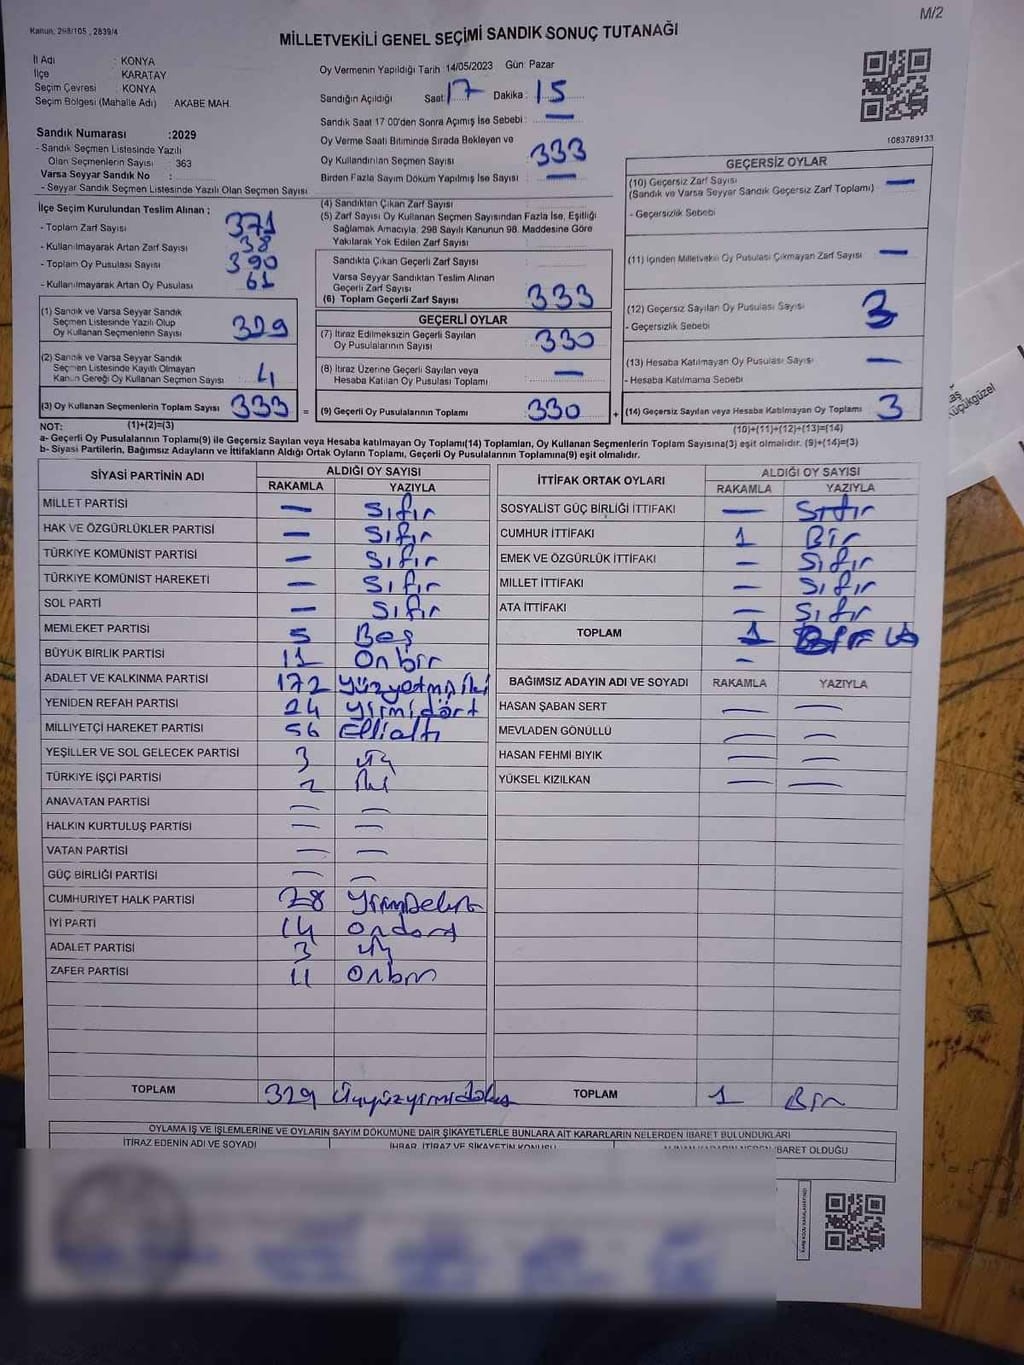 M/2
Kanun, 298/105 , 2839/4
MİLLETVEKİLİ GENEL SEÇİMİ SANDIK SONUÇ TUTANAĞI
İl Adı : KONYA
İlçe : KARATAY
Seçim Çevresi : KONYA
Seçim Bölgesi (Mahalle Adı) AKABE MAH.
Sandık Numarası :2029
- Sandık Seçmen Listesinde Yazılı
Olan Seçmenlerin Sayısı : 363
Varsa Seyyar Sandık No :
- Seyyar Sandık Seçmen Listesinde Yazılı Olan Seçmen Sayısı
Oy Vermenin Yapıldığı Tarih :14/05/2023 Gün: Pazar
Sandığın Açıldığı Saat: 17 Dakika : 15
Sandık Saat 17 00'den Sonra Açımış İse Sebebi : —
Oy Verme Saati Bitiminde Sırada Bekleyen ve
Oy Kullandırılan Seçmen Sayısı 333
Birden Fazla Sayım Döküm Yapılmış İse Sayısı : —
1083789133
İlçe Seçim Kurulundan Teslim Alınan ;
- Toplam Zarf Sayısı 371
- Kullanılmayarak Artan Zarf Sayısı 38
- Toplam Oy Pusulası Sayısı 390
- Kullanılmayarak Artan Oy Pusulası 61
(1) Sandık ve Varsa Seyyar Sandık
Seçmen Listesinde Yazılı Olup
Oy Kullanan Seçmenlerin Sayısı 329
(2) Sandık ve Varsa Seyyar Sandık
Seçmen Listesinde Kayıtlı Olmayan
Kanun Gereği Oy Kullanan Seçmen Sayısı 4
(3) Oy Kullanan Seçmenlerin Toplam Sayısı 333 =
(4) Sandıktan Çıkan Zarf Sayısı
(5) Zarf Sayısı Oy Kullanan Seçmen Sayısından Fazla İse, Eşitliği
Sağlamak Amacıyla, 298 Sayılı Kanunun 98. Maddesine Göre
Yakılarak Yok Edilen Zarf Sayısı
Sandıkta Çıkan Geçerli Zarf Sayısı
Varsa Seyyar Sandıktan Teslim Alınan
Geçerli Zarf Sayısı
(6) Toplam Geçerli Zarf Sayısı 333
GEÇERLİ OYLAR
(7) İtiraz Edilmeksizin Geçerli Sayılan
Oy Pusulalarının Sayısı 330
(8) İtiraz Üzerine Geçerli Sayılan veya
Hesaba Katılan Oy Pusulası Toplamı —
(9) Geçerli Oy Pusulalarının Toplamı 330 +
GEÇERSİZ OYLAR
(10) Geçersiz Zarf Sayısı
(Sandık ve Varsa Seyyar Sandık Geçersiz Zarf Toplamı) —
- Geçersizlik Sebebi
(11) İçinden Milletvekili Oy Pusulası Çıkmayan Zarf Sayısı —
(12) Geçersiz Sayılan Oy Pusulası Sayısı 3
- Geçersizlik Sebebi
(13) Hesaba Katılmayan Oy Pusulası Sayısı —
- Hesaba Katılmama Sebebi
(14) Geçersiz Sayılan veya Hesaba Katılmayan Oy Toplamı 3
NOT: (1)+(2)=(3)
(10)+(11)+(12)+(13)=(14)
a- Geçerli Oy Pusulalarının Toplamı(9) ile Geçersiz Sayılan veya Hesaba katılmayan Oy Toplamı(14) Toplamları, Oy Kullanan Seçmenlerin Toplam Sayısına(3) eşit olmalıdır. (9)+(14)=(3)
b- Siyasi Partilerin, Bağımsız Adayların ve İttifakların Aldığı Ortak Oyların Toplamı, Geçerli Oy Pusulalarının Toplamına(9) eşit olmalıdır.
SİYASİ PARTİNİN ADI ALDIĞI OY SAYISI
RAKAMLA YAZIYLA
MİLLET PARTİSİ — Sıfır
HAK VE ÖZGÜRLÜKLER PARTİSİ — Sıfır
TÜRKİYE KOMÜNİST PARTİSİ — Sıfır
TÜRKİYE KOMÜNİST HAREKETİ — Sıfır
SOL PARTİ — Sıfır
MEMLEKET PARTİSİ 5 Beş
BÜYÜK BİRLİK PARTİSİ 11 Onbir
ADALET VE KALKINMA PARTİSİ 172 Yüzyetmişiki
YENİDEN REFAH PARTİSİ 24 Yirmidört
MİLLİYETÇİ HAREKET PARTİSİ 56 Ellialtı
YEŞİLLER VE SOL GELECEK PARTİSİ 3 Üç
TÜRKİYE İŞÇİ PARTİSİ 2 İki
ANAVATAN PARTİSİ — —
HALKIN KURTULUŞ PARTİSİ — —
VATAN PARTİSİ — —
GÜÇ BİRLİĞİ PARTİSİ — —
CUMHURİYET HALK PARTİSİ 28 Yirmisekiz
İYİ PARTİ 14 Ondört
ADALET PARTİSİ 3 Üç
ZAFER PARTİSİ 11 Onbir
TOPLAM 329 Üçyüzyirmidokuz
İTTİFAK ORTAK OYLARI ALDIĞI OY SAYISI
RAKAMLA YAZIYLA
SOSYALİST GÜÇ BİRLİĞİ İTTİFAKI — Sıfır
CUMHUR İTTİFAKI 1 Bir
EMEK VE ÖZGÜRLÜK İTTİFAKI — Sıfır
MİLLET İTTİFAKI — Sıfır
ATA İTTİFAKI — Sıfır
TOPLAM 1
—
BAĞIMSIZ ADAYIN ADI VE SOYADI RAKAMLA YAZIYLA
HASAN ŞABAN SERT — —
MEVLADEN GÖNÜLLÜ — —
HASAN FEHMI BIYIK — —
YÜKSEL KIZILKAN — —
TOPLAM 1 Bir
OYLAMA İŞ VE İŞLEMLERİNE VE OYLARIN SAYIM DÖKÜMÜNE DAİR ŞİKAYETLERLE BUNLARA AİT KARARLARIN NELERDEN İBARET BULUNDUKLARI
İTİRAZ EDENİN ADI VE SOYADI İHBAR, İTİRAZ VE ŞİKAYETİN KONUSU İBARET OLDUĞU
Küçükgüzel